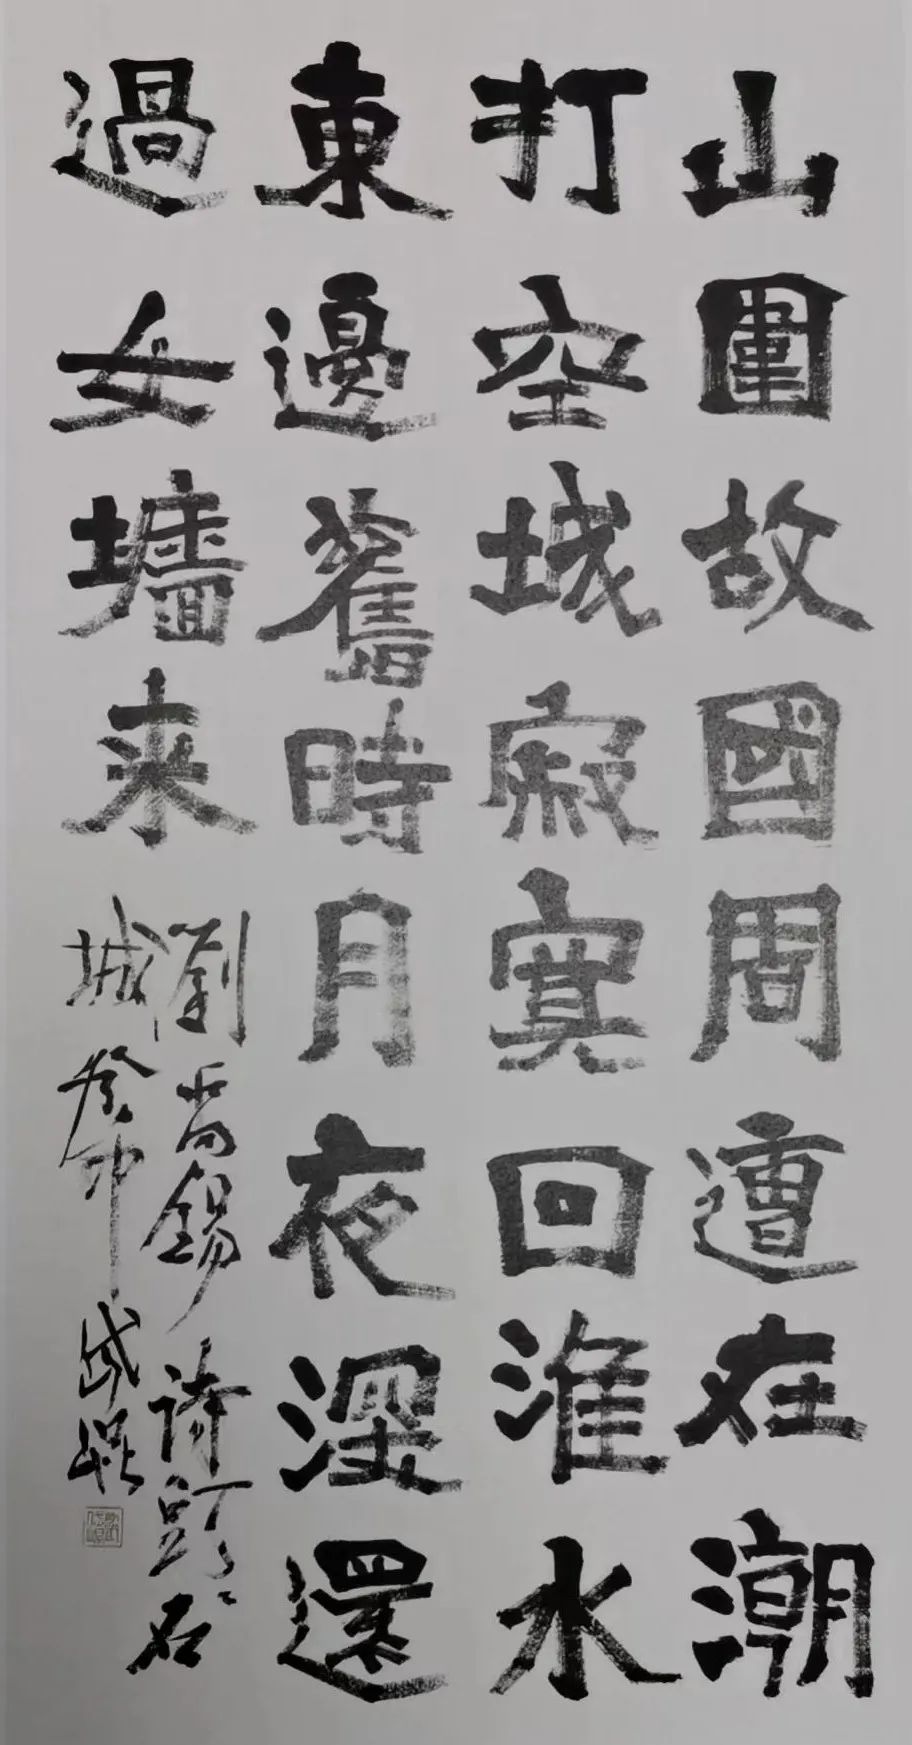 山圍故國周遭在潮
打空城寂寞回淮水
東邊舊時月夜深還
過女墻来
劉禹錫詩頭石
城癸卯岱